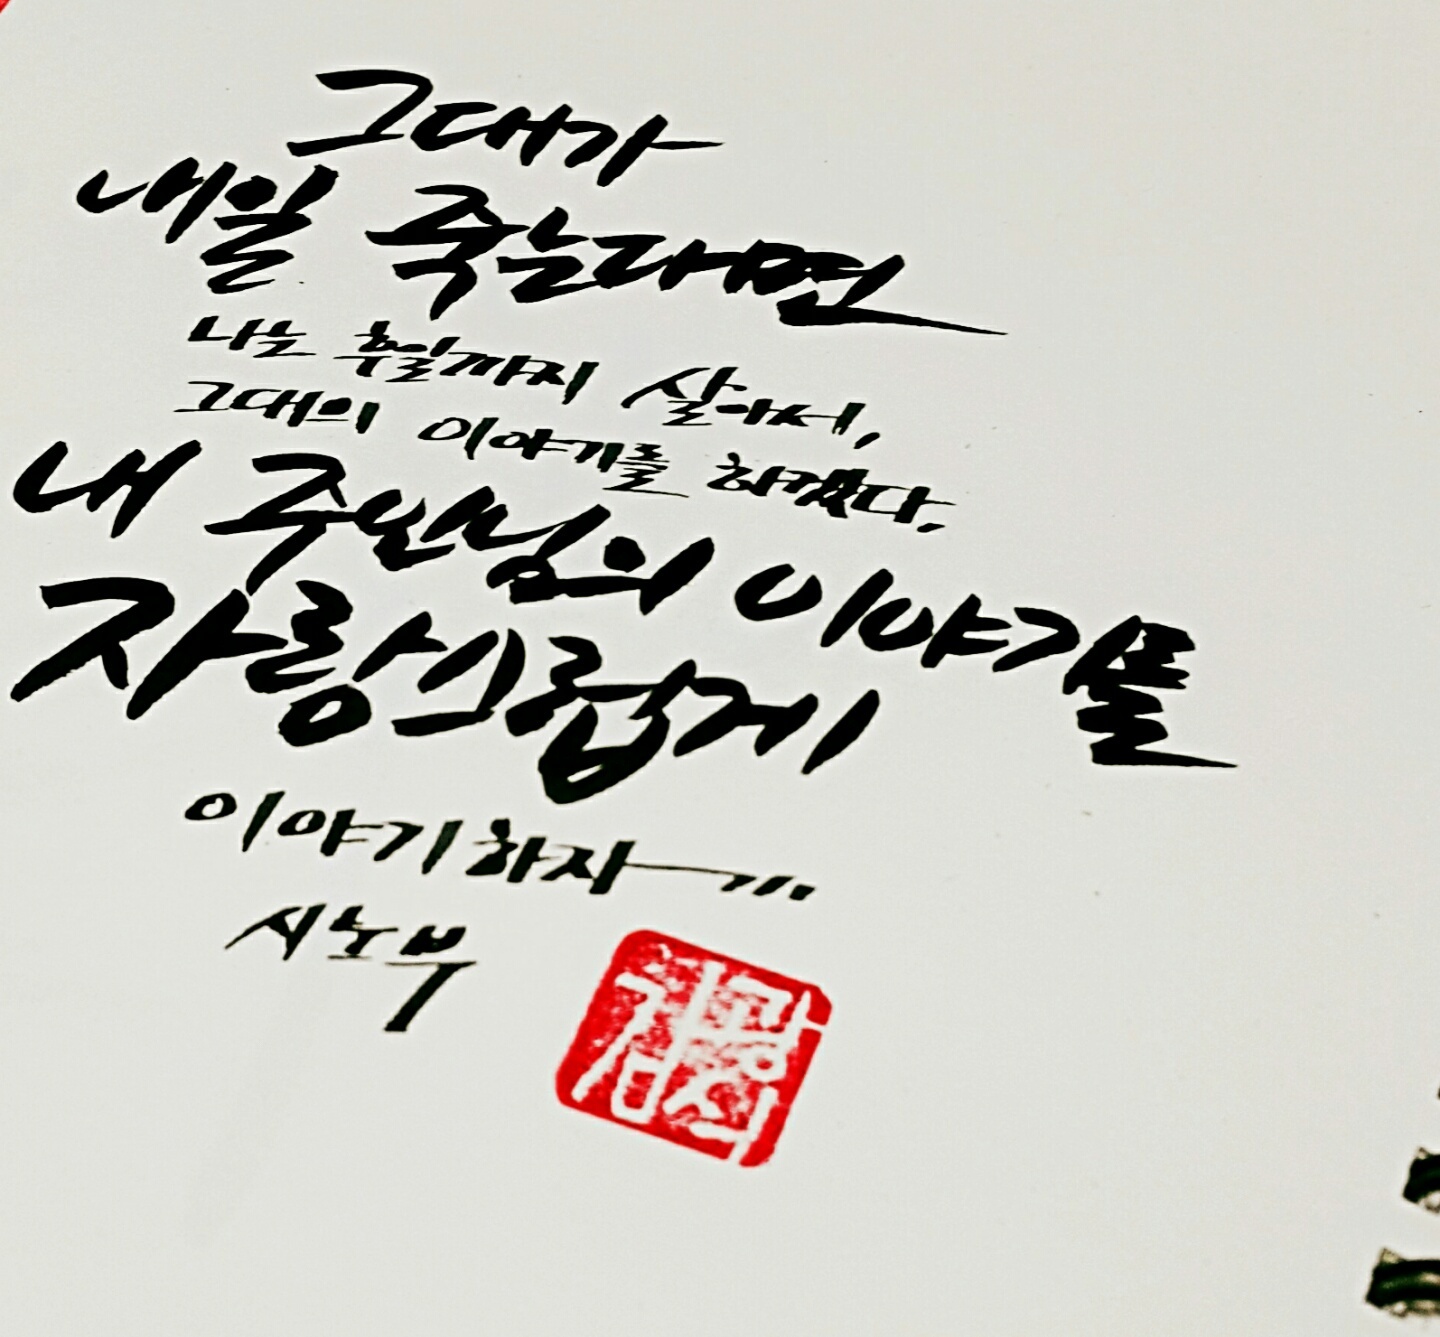 그대가
내일 죽는다면
나는 훗일까지 살아서,
그대의 이야기를 하겠다.
내 주인님의 이야기를
자랑스럽게
이야기하자...
시노부